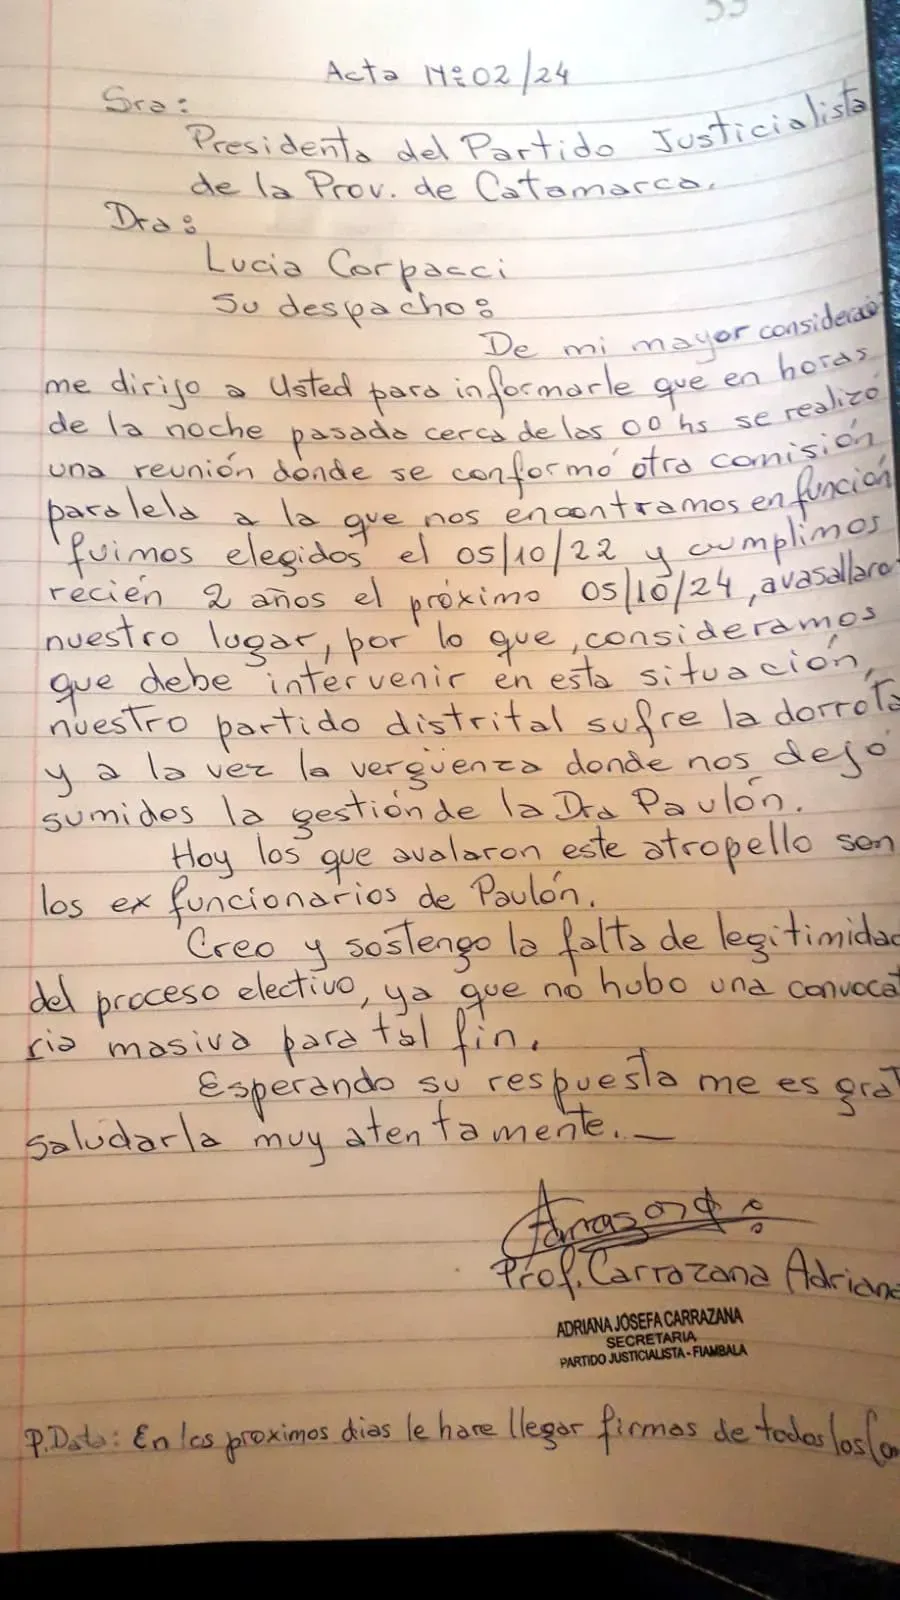 Acta Nº: 02/24
Sra:
Presidenta del Partido Justicialista
de la Prov. de Catamarca.
Dra:
Lucia Corpacci
Su despacho:
De mi mayor consideració
me dirijo a Usted para informarle que en horas
de la noche pasada cerca de las 00 hs se realizó
una reunión donde se conformó otra comisión
paralela a la que nos encontramos en función
fuimos elegidos el 05/10/22 y cumplimos
recién 2 años el próximo 05/10/24, avasallaro
nuestro lugar, por lo que, consideramos
que debe intervenir en esta situación,
nuestro partido distrital sufre la dorrota
y a la vez la verguenza donde nos dejó
sumidos la gestión de la Dra Paulón.
Hoy los que avalaron este atropello son
los ex funcionarios de Paulón.
Creo y sostengo la falta de legitimidad
del proceso electivo, ya que no hubo una convocat
ria masiva para tal fin.
Esperando su respuesta me es grat
saludarla muy atentamente.—
Prof. Carrazana Adriana
ADRIANA JOSEFA CARRAZANA
SECRETARIA
PARTIDO JUSTICIALISTA - FIAMBALA
P.Data: En los proximos dias le hare llegar firmas de todos los